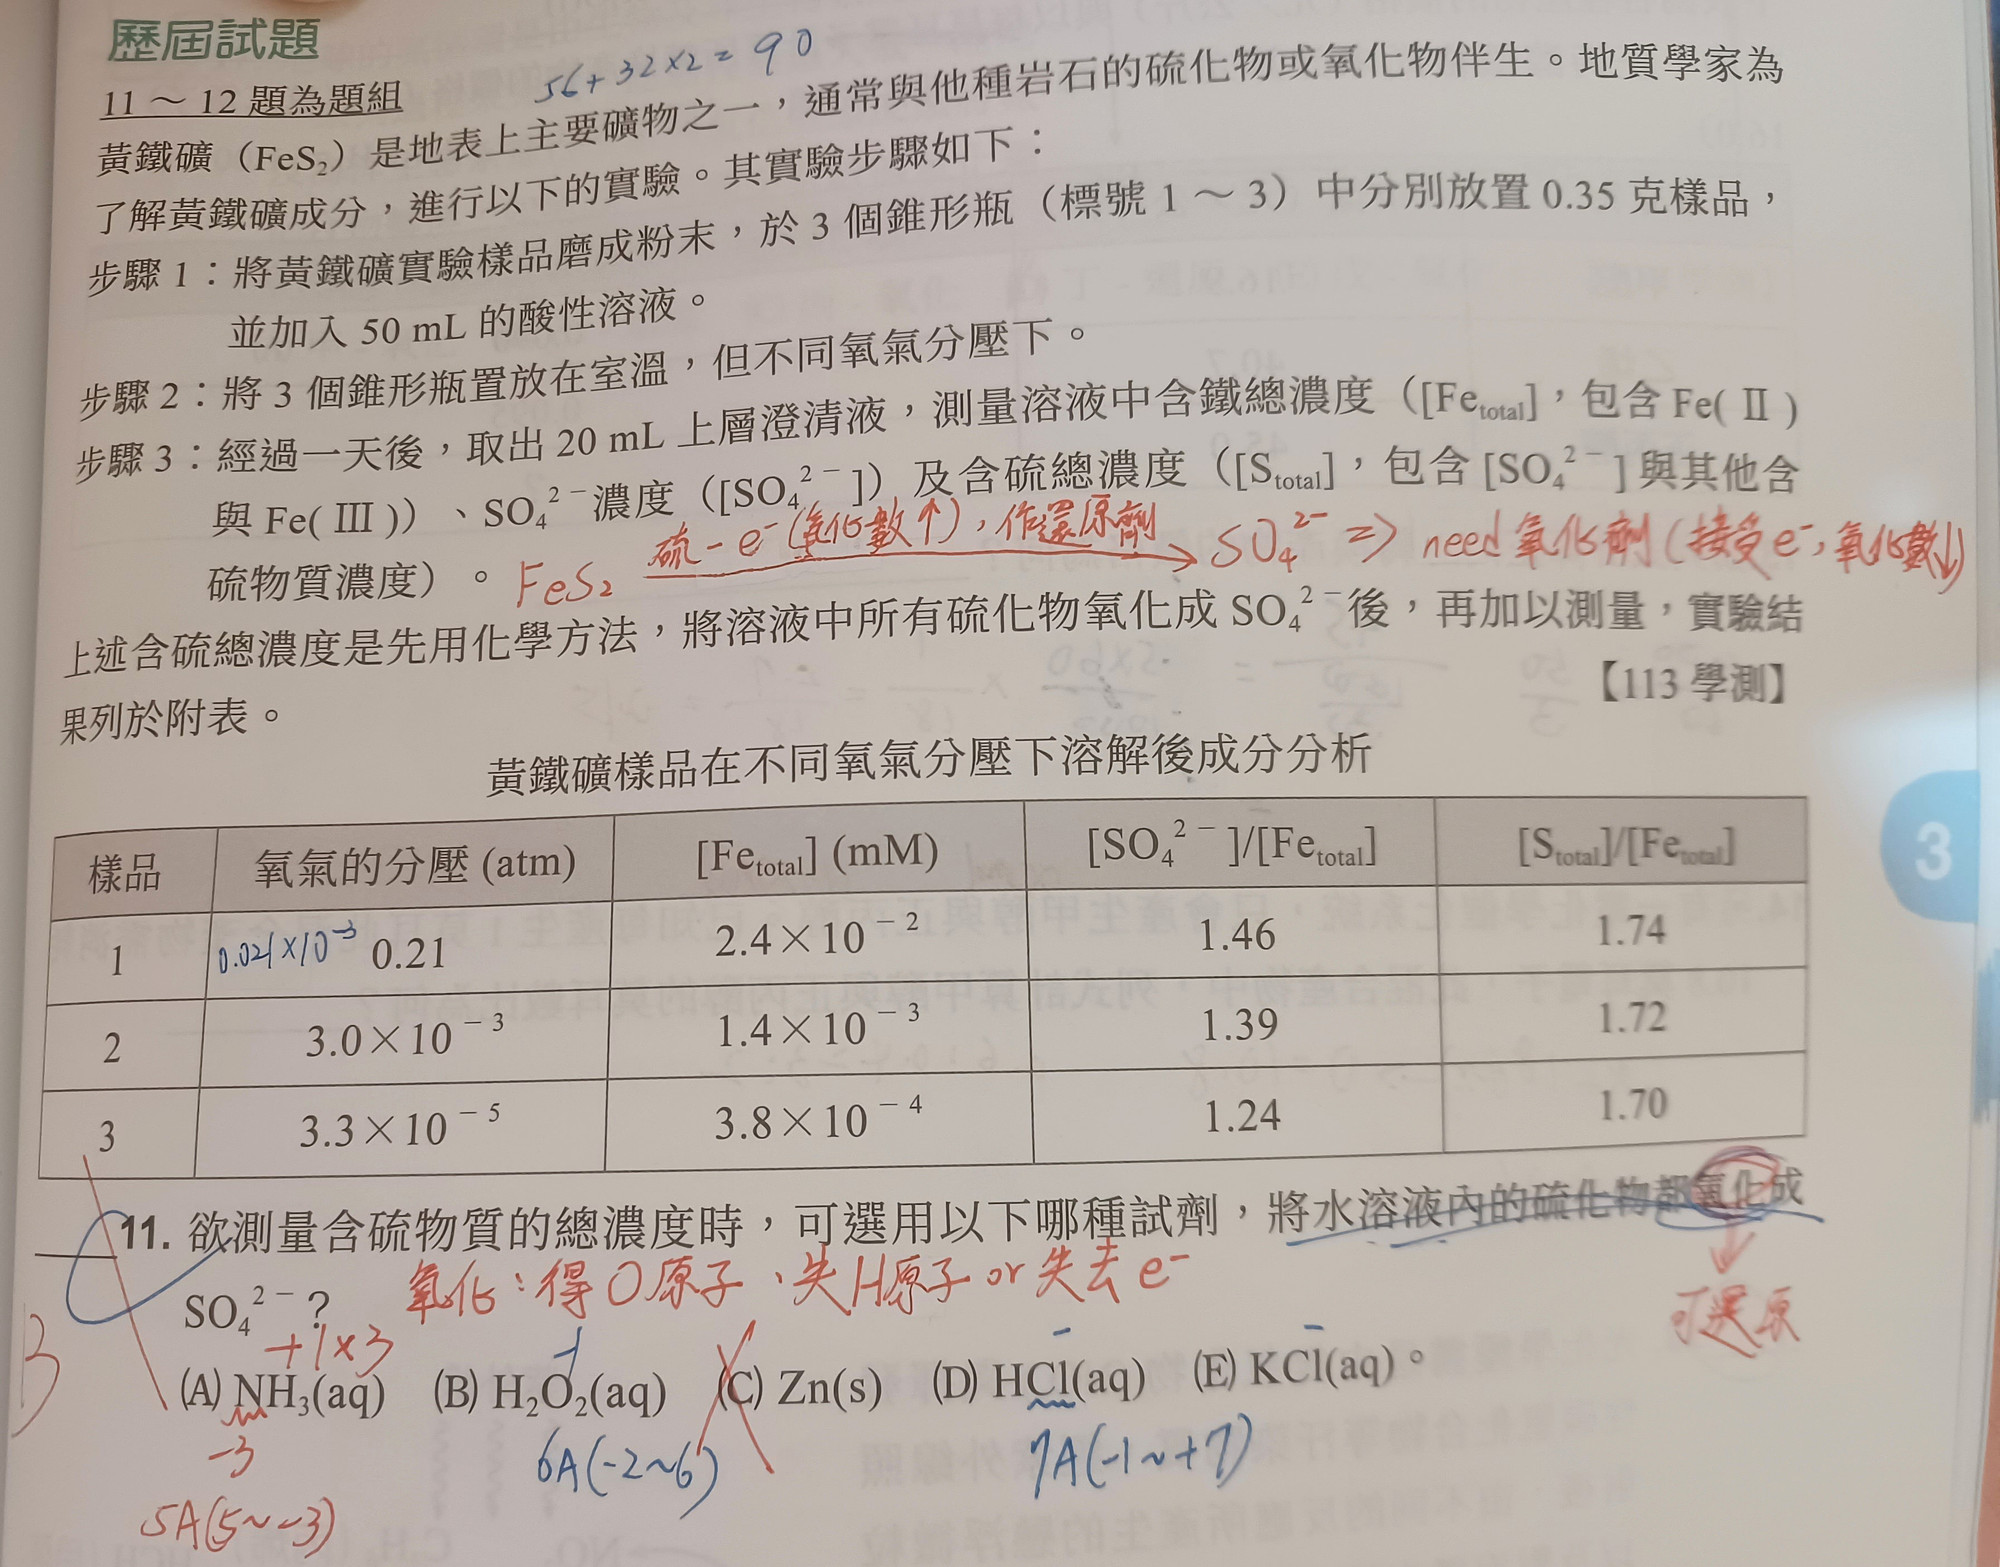 歷屆試題
56+32×2=90
11～12題為題組
黃鐵礦（FeS₂）是地表上主要礦物之一，通常與他種岩石的硫化物或氧化物伴生。地質學家為
了解黃鐵礦成分，進行以下的實驗。其實驗步驟如下：
步驟1：將黃鐵礦實驗樣品磨成粉末，於3個錐形瓶（標號1～3）中分別放置0.35克樣品，
並加入50 mL的酸性溶液。
步驟2：將3個錐形瓶置放在室溫，但不同氧氣分壓下。
步驟3：經過一天後，取出20 mL上層澄清液，測量溶液中含鐵總濃度（[Fe_total]，包含Fe(Ⅱ)
與Fe(Ⅲ)）、SO₄²⁻濃度（[SO₄²⁻]）及含硫總濃度（[S_total]，包含[SO₄²⁻]與其他含
硫物質濃度）。
FeS₂ 硫-e⁻(氧化數↑)，作還原劑 → SO₄²⁻ ⇒ need 氧化劑(接受e⁻，氧化數↓)
上述含硫總濃度是先用化學方法，將溶液中所有硫化物氧化成SO₄²⁻後，再加以測量，實驗結
果列於附表。
【113學測】
黃鐵礦樣品在不同氧氣分壓下溶解後成分分析
樣品 氧氣的分壓(atm) [Fe_total](mM) [SO₄²⁻]/[Fe_total] [S_total]/[Fe_total]
1 0.021×10⁻³ 0.21 2.4×10⁻² 1.46 1.74
2 3.0×10⁻³ 1.4×10⁻³ 1.39 1.72
3 3.3×10⁻⁵ 3.8×10⁻⁴ 1.24 1.70
3
11. 欲測量含硫物質的總濃度時，可選用以下哪種試劑，將水溶液內的硫化物都氧化成
SO₄²⁻？
氧化：得O原子、失H原子 or 失去e⁻
可還原
B
+1×3
-1
-
-
(A) NH₃(aq) (B) H₂O₂(aq) (C) Zn(s) (D) HCl(aq) (E) KCl(aq)。
-3
6A(-2~6)
7A(-1~+7)
5A(5~-3)